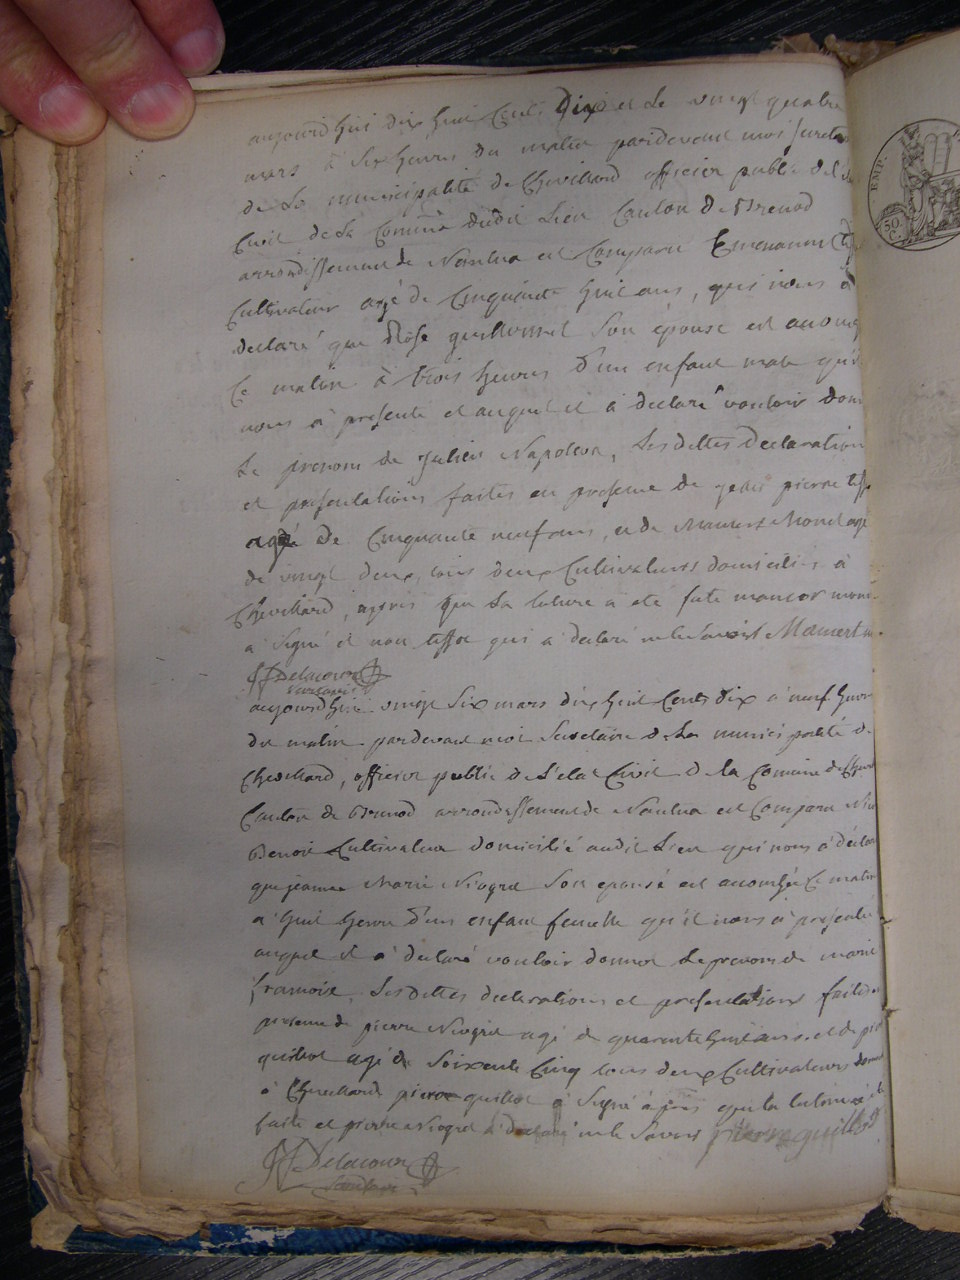 aujourd'hui dix huit Cents Dix et le vingt quatre
mars à six heures du matin pardevant moi
de la municipalité de Chevillard officier public de l'
Civil de la Comune dudit Lieu Canton de Brenod
arrondissement de Nantua est Comparu
Cultivateur agé de Cinquante huit ans, qui nous à
declaré que Rose guillermet Son épouse est
Ce matin à trois heures d'un enfant male qu'il
nous à presenté et auquel il à declaré vouloir
Le prenom de Julien Napoleon, Les dittes declaration
et presentations faites en presence de pierre
agé de Cinquante neuf ans, et de Mamert Monet agé
de vingt deux, tous deux Cultivateurs domicilies à
Chevillard, apres que La lecture a eté faite mamert
a Signé et non tissot qui a declaré ne le Savoir Mamert
Delacour
aujourd'hui vingt Six mars dix huit Cents dix à neuf heures
du matin pardevant moi Secretaire de La municipalité de
Chevillard, officier public de L'etat Civil de la Comune de
Canton de Brenod arrondissement de Nantua est Comparu
Benoit Cultivateur domicilié audit Lieu qui nous à
que jeanne Marie Niogret Son epouse est accouchée Ce matin
a huit heures d'un enfant femelle qu'il nous à presenté
auquel il à declaré vouloir donner Le prenom de marie
francoise, Les dittes declarations et presentations faites en
presence de pierre Niogret agé de quarante huit ans, et de
quillot agé de Soixante Cinq tous deux Cultivateurs
à Chevillard pierre quillot à Signé après que la lecture
faite et pierre Niogret à declaré ne le Savoir pierre quillot
Delacour
EMP.
50
C.